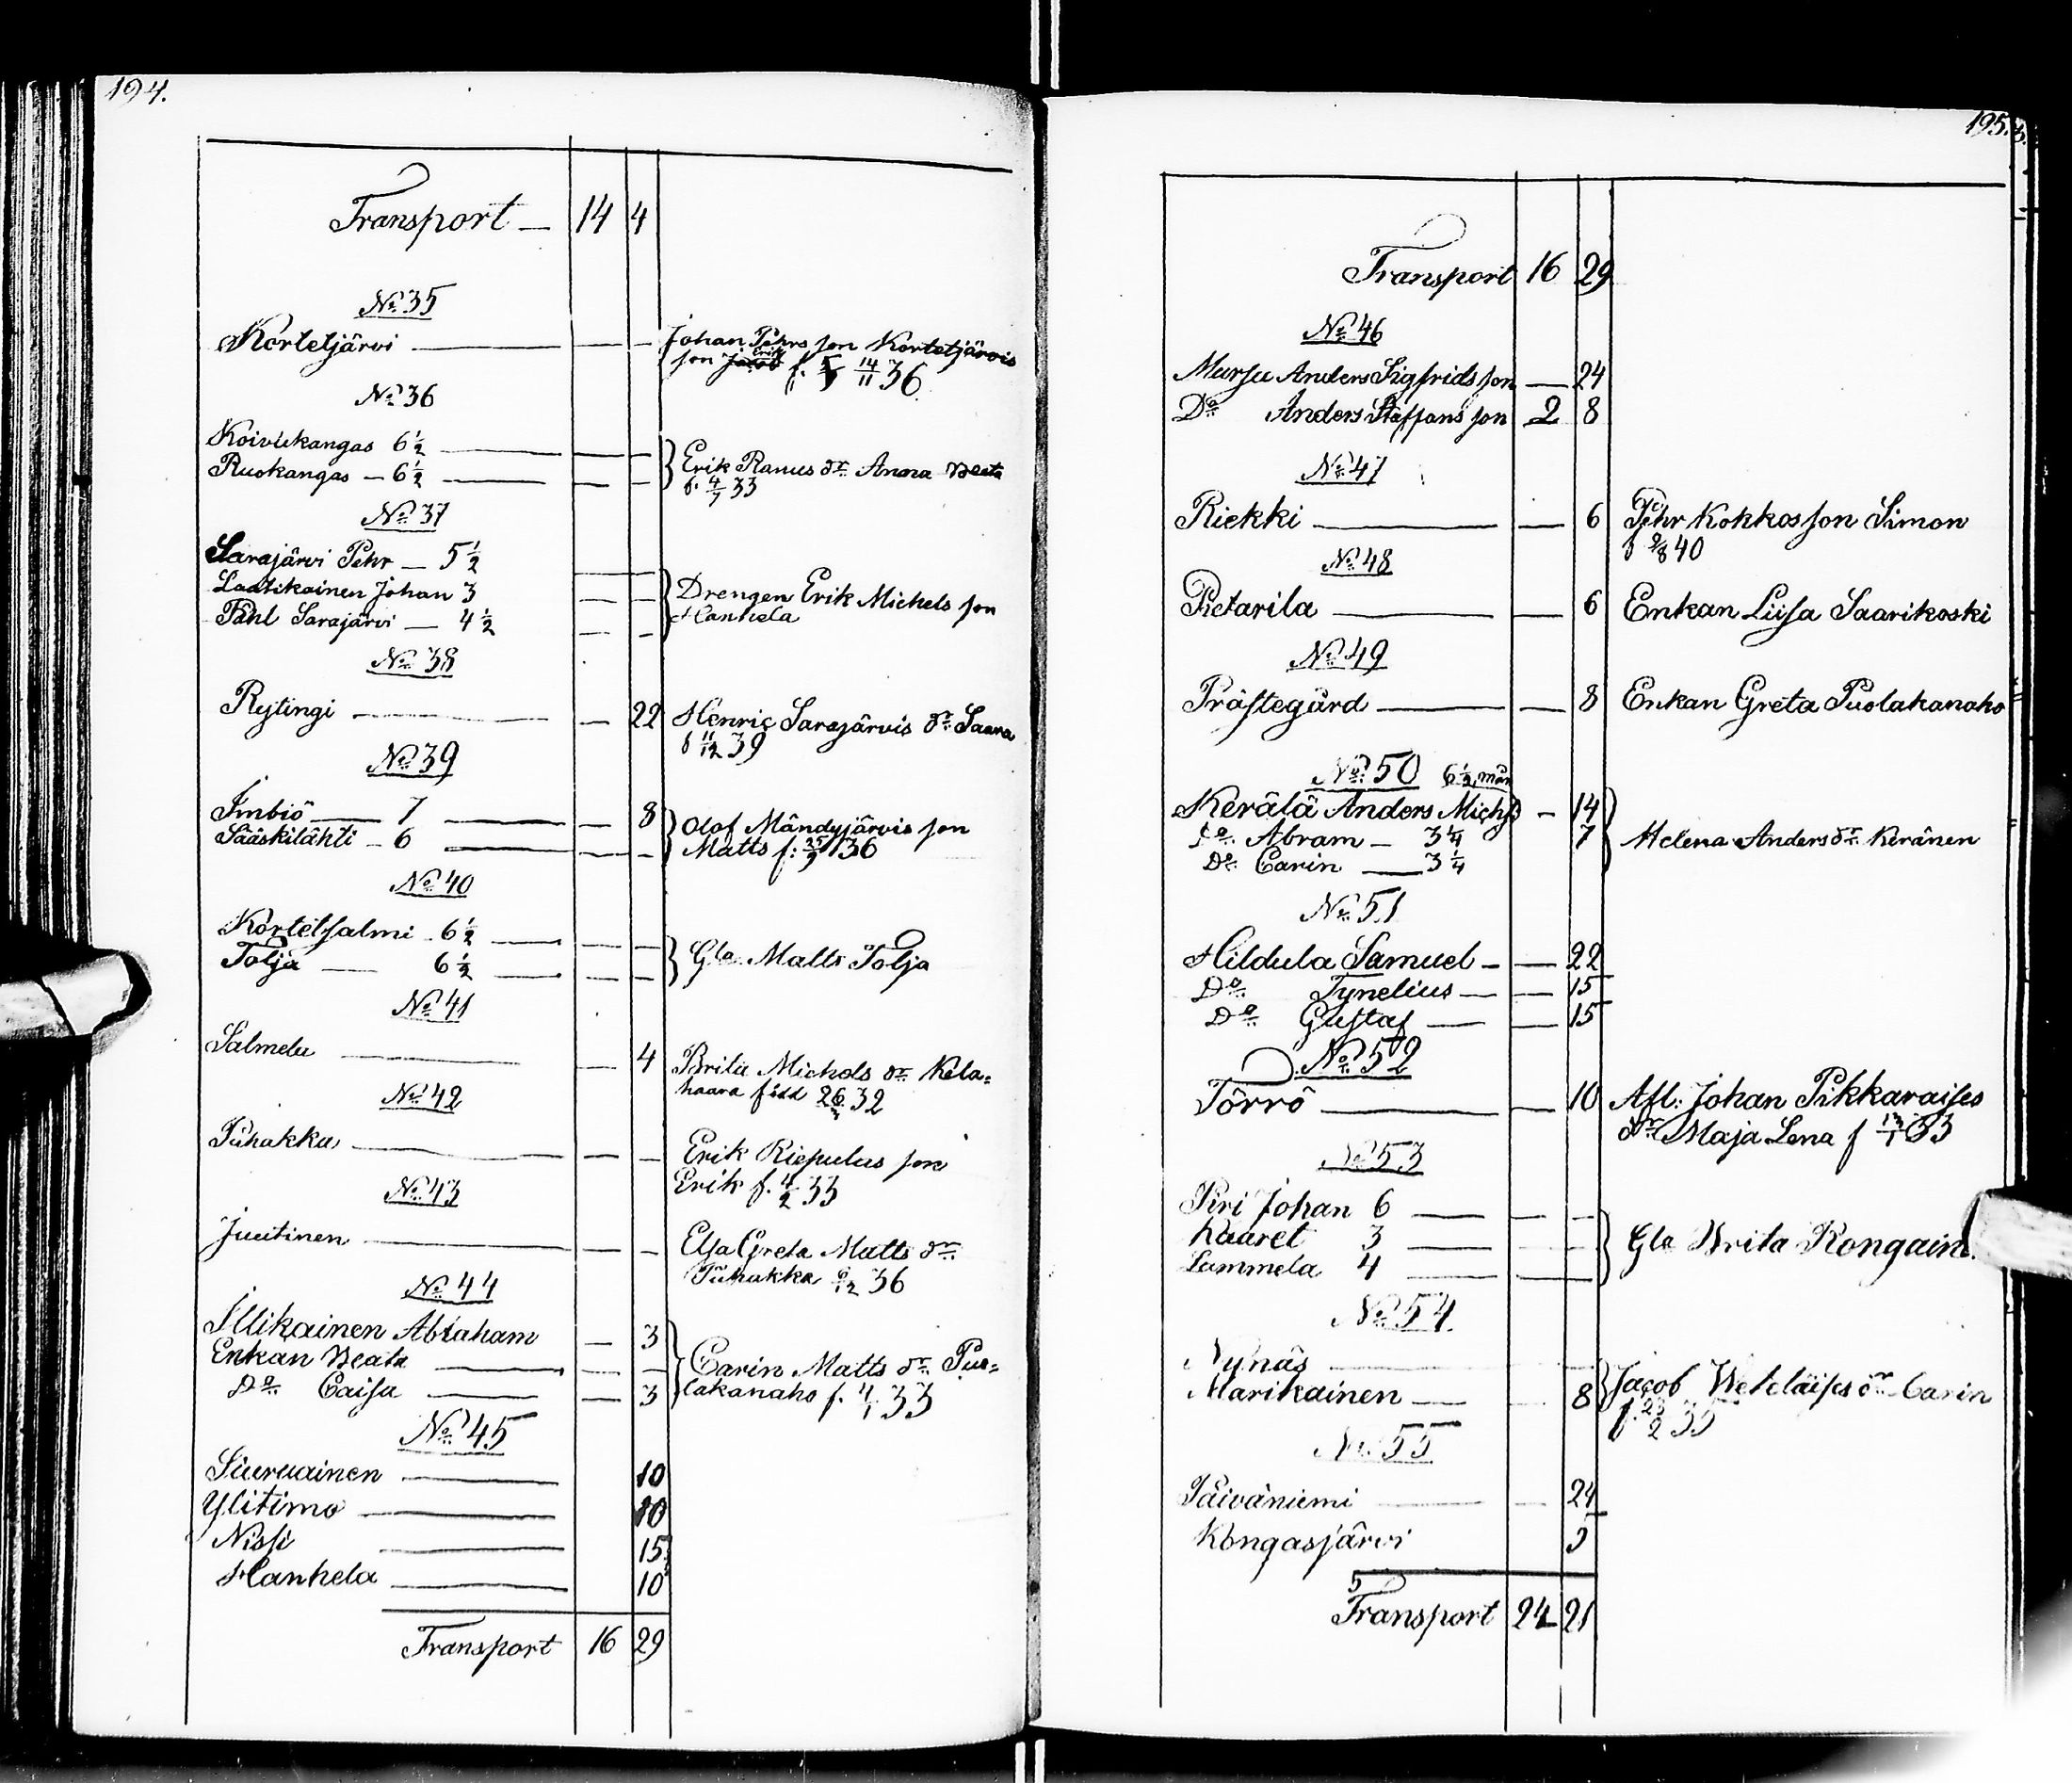 194.
Transport — 14 4
No 35
Kortetjärvi — — Johan Pehrs son Kortetjärvis
son Erik f. 14/11 36
No 36
Koivukangas 6 1/2 — — —
Ruokangas — 6 1/2 — — —
Erik Ranus dr Anna Beata
f. 4/7 33
No 37
Sarajärvi Pehr — 5 1/2
Laatikainen Johan 3
Påhl Sarajärvi — 4 1/2
Drengen Erik Michels son
Hanhela
No 38
Rytingi — — 22 Henric Sarajärvis dr Saara
f 11/12 39
No 39
Imbiö — 7 — — 8
Sääskilahti — 6 — —
Olof Mändyjärvis son
Matts f: 25/9 36
No 40
Kortetsalmi 6 1/2 — — —
Tolja — 6 1/2 — — —
Gla Matts Tolja
No 41
Salmela — — 4 Brita Michels dr Kela=
haara född 26/3 32
No 42
Puhakka — — — Erik Riepulas son
Erik f. 4/2 33
No 43
Juutinen — — — Elsa Greta Matts dr
Puhakka 6/12 36
No 44
Illikainen Abraham — 3
Enkan Beata — — —
Do Caisa — — 3
Carin Matts dr Puo=
lakanaho f. 4/1 33
No 45
Siuruainen — 10
Ylitimo — 10
Nissi — 15
Hanhela — 10
Transport 16 29
195.
Transport 16 29
No 46
Mursu Anders Sigfrids son — 24
Do Anders Staffans son 2 8
No 47
Riekki — — 6 Pehr Kokkos son Simon
f 2/8 40
No 48
Pietarila — — 6 Enkan Liisa Saarikoski
No 49
Prästegård — — 8 Enkan Greta Puolakanaho
No 50 6 1/2 mån
Kerälä Anders Michs — 14
Do Abram — 3 1/4 7
Do Carin — 3 1/4
Helena Anders dr Keränen
No 51
Hildula Samuel — — 22
Do Tynelius — — 15
Do Gustaf — — 15
No 52
Törrö — — 10 Afl: Johan Pikkaraises
dr Maja Lena f 13/1 33
No 53
Piri Johan 6 — — —
Kaaret 3 — — —
Lammela 4 — —
Gla Brita Kongain
No 54
Nynäs —
Marikainen — 8
Jacob Weteläises dr Carin
f. 23/2 35
No 55
Päiväniemi — — 24
Kongasjärvi
5
Transport 24 21